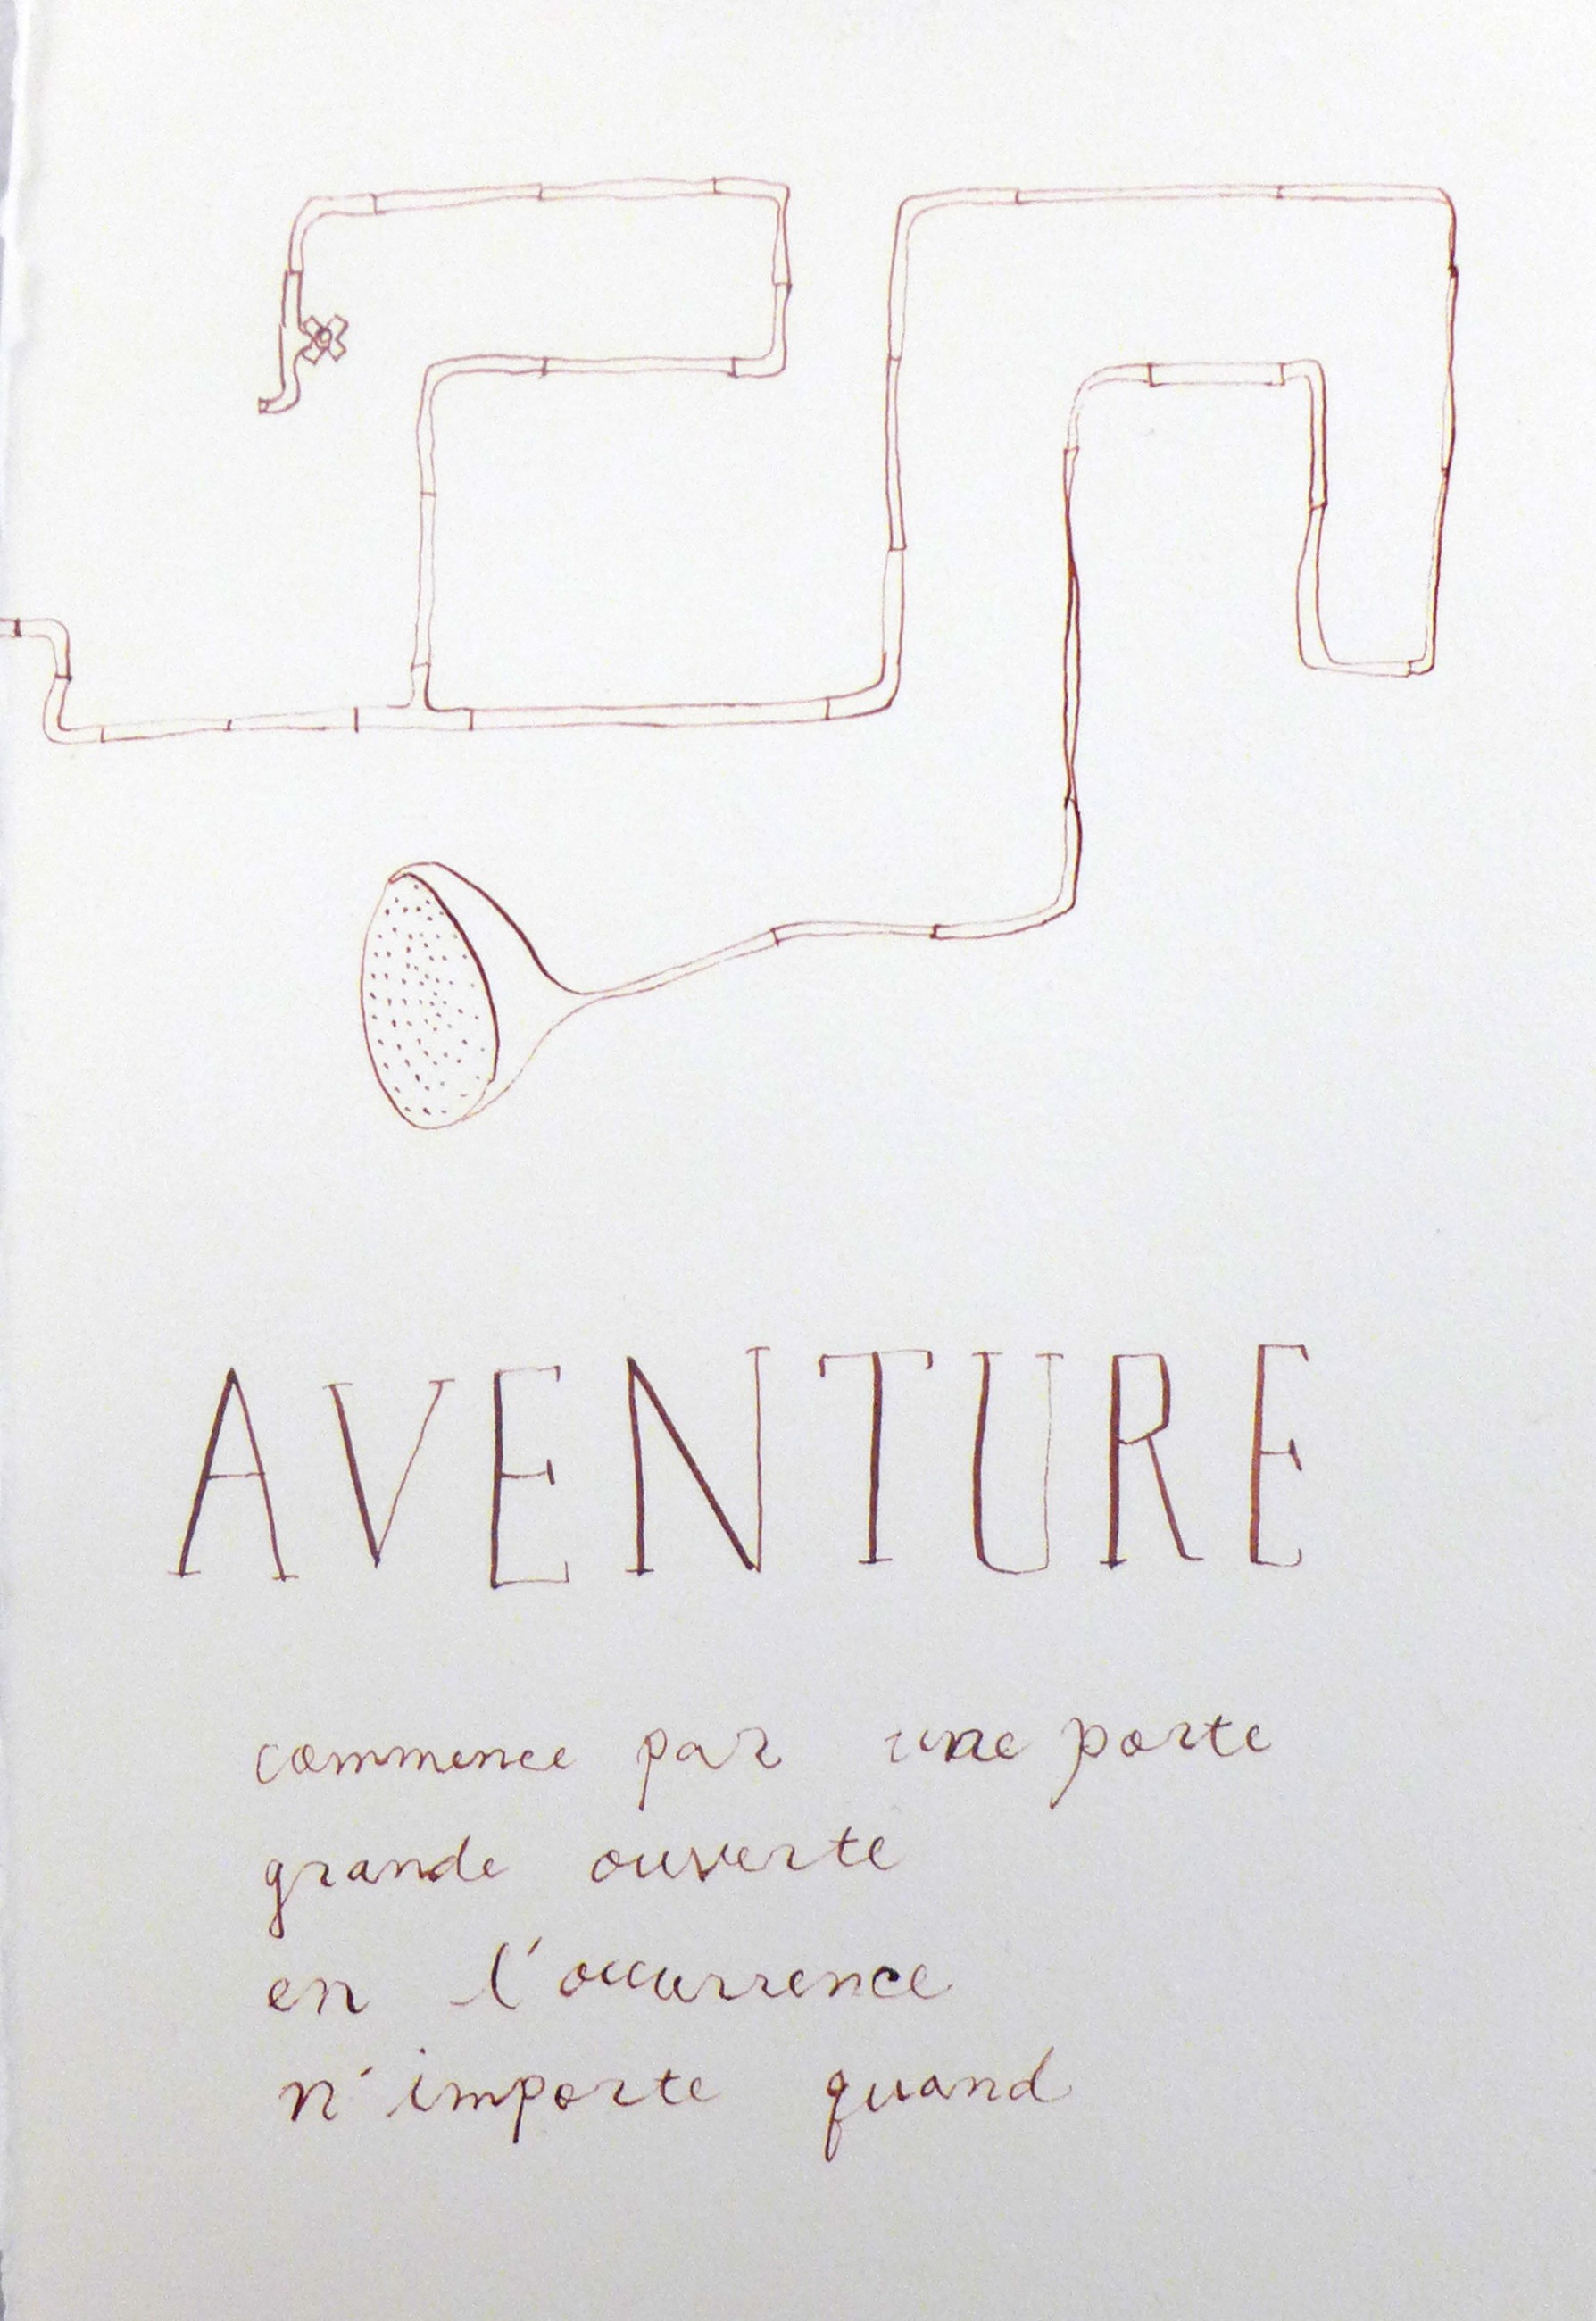 AVENTURE
commence par une porte
grande ouverte
en l'occurrence
n'importe quand